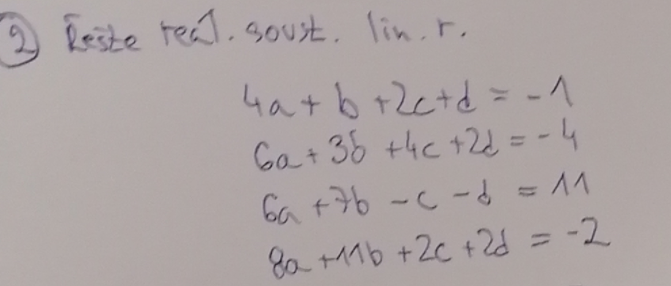 2) Řešte reál. soust. lin. r.
4a + b + 2c + d = -1
6a + 3b + 4c + 2d = -4
6a + 7b - c - d = 11
8a + 11b + 2c + 2d = -2